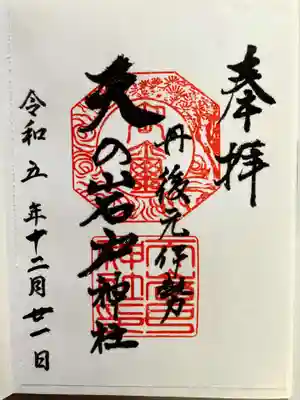 奉拝
丹後元伊勢
天の岩戸神社
令和五年十二月廿一日